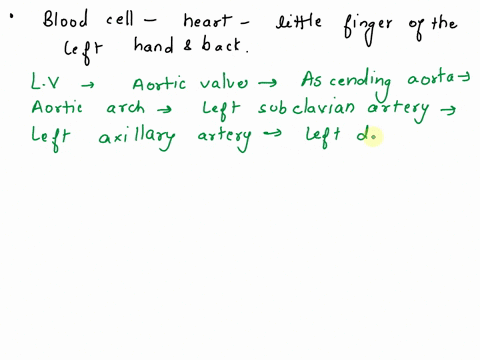 • Blood cell - heart - little finger of the
left hand & back.
L.V → Aortic valve → Ascending aorta →
Aortic arch → Left subclavian artery →
Left axillary artery → Left d.